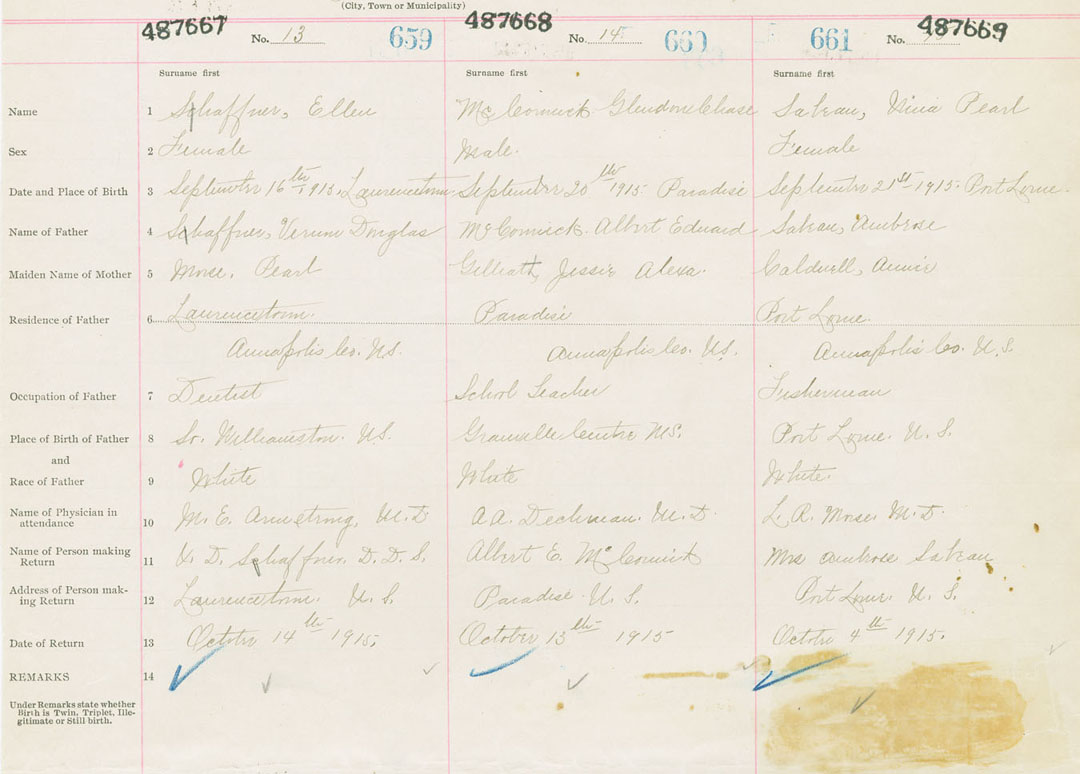 (City, Town or Municipality)
487667 487668 487669
No. 13 659 No. 14 660 661 No.
Surname first Surname first Surname first
Name 1 Schaffner, Ellen McCormick Glendon Chase Sabean, Pearl
Sex 2 Female Male. Female
Date and Place of Birth 3 September 16th 1915, Lawrencetown September 20th 1915 Paradise September 21st 1915. Port Lorne.
Name of Father 4 Schaffner, Vernon Douglas McCormick. Albert Edward Sabean, Ambrose
Maiden Name of Mother 5 Morse, Pearl Jessie Alexa. Caldwell, Annie
Residence of Father 6 Lawrencetown. Paradise Port Lorne.
Annapolis Co. N.S. Annapolis Co. N.S. Annapolis Co. N.S.
Occupation of Father 7 Dentist School Teacher Fisherman
Place of Birth of Father 8 So. Williamston. N.S. Granville Centre N.S. Port Lorne. N.S.
and
Race of Father 9 White White White.
Name of Physician in
attendance 10 M. E. Armstrong, M.D A.A. Dechman. M.D. L. R. Morse. M.D.
Name of Person making
Return 11 V. D. Schaffner. D.D.S. Albert E. McCormick Mrs Ambrose Sabean
Address of Person mak-
ing Return 12 Lawrencetown. N.S. Paradise N.S. Port Lorne. N.S.
Date of Return 13 October 14th 1915. October 13th 1915 October 4th 1915.
REMARKS 14
Under Remarks state whether
Birth is Twin, Triplet, Ille-
gitimate or Still birth.